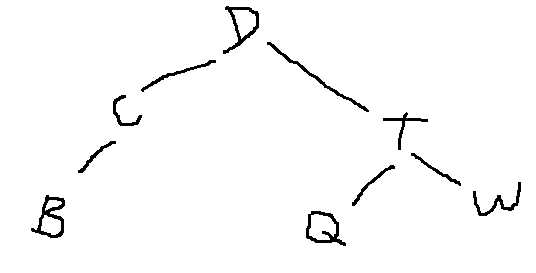 D
C T
B Q W